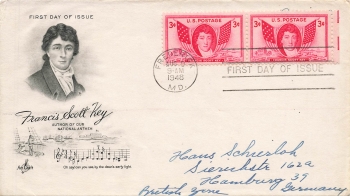 FIRST DAY OF ISSUE
3¢ U.S. POSTAGE 3¢
3¢ U.S. POSTAGE 3¢
9-AM
1948
MD.
FIRST DAY OF ISSUE
Francis Scott Key
AUTHOR OF OUR
NATIONAL ANTHEM
Oh say can you see by the dawn's early light
Hans
162a
Hamburg 39
British Zone Germany